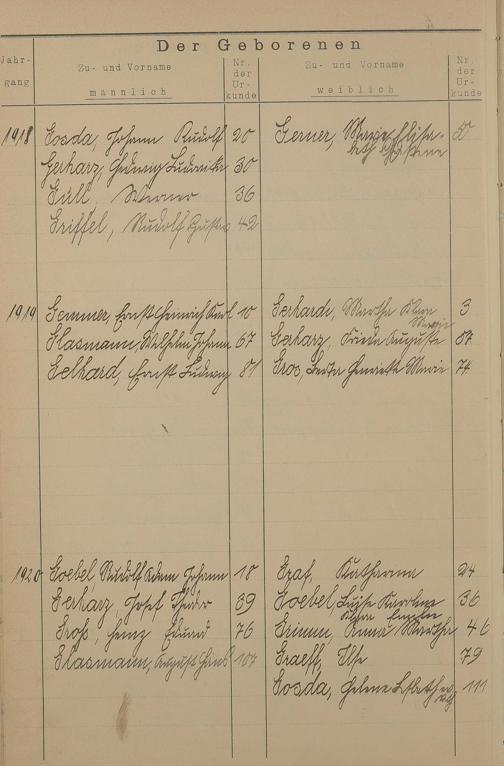 Der Geborenen
Jahr-
gang
Zu- und Vorname
männlich
Nr.
der
Ur-
kunde
Zu- und Vorname
weiblich
Nr.
der
Ur-
kunde
1918 Gosda, Johann Rudolf 20
Gerner, Marie Elisa-
beth 50
Gerharz, Hedwig 30
Güll, Werner 36
Griffel, Rudolf Gustav 42
1919 Gemmer, Ernst Heinrich Karl 10
Gerhardt, Martha Klara 3
Marie
Glasmann, Wilhelm Johann 67
Gerharz, Frieda Auguste 57
Gelhard, Ernst Ludwig 81
Gros, Henriette Marie 74
1920 Goebel Rudolf Adam Johann 18
Graf, Katharina 24
Gerharz, Josef 39
Goebel, Luise Karoline 36
Groß, Heinz Eduard 76
Grimm, Anna Martha 46
Glasmann, August Hans 107
Graeff, Ilse 79
Gosda, Helene 111